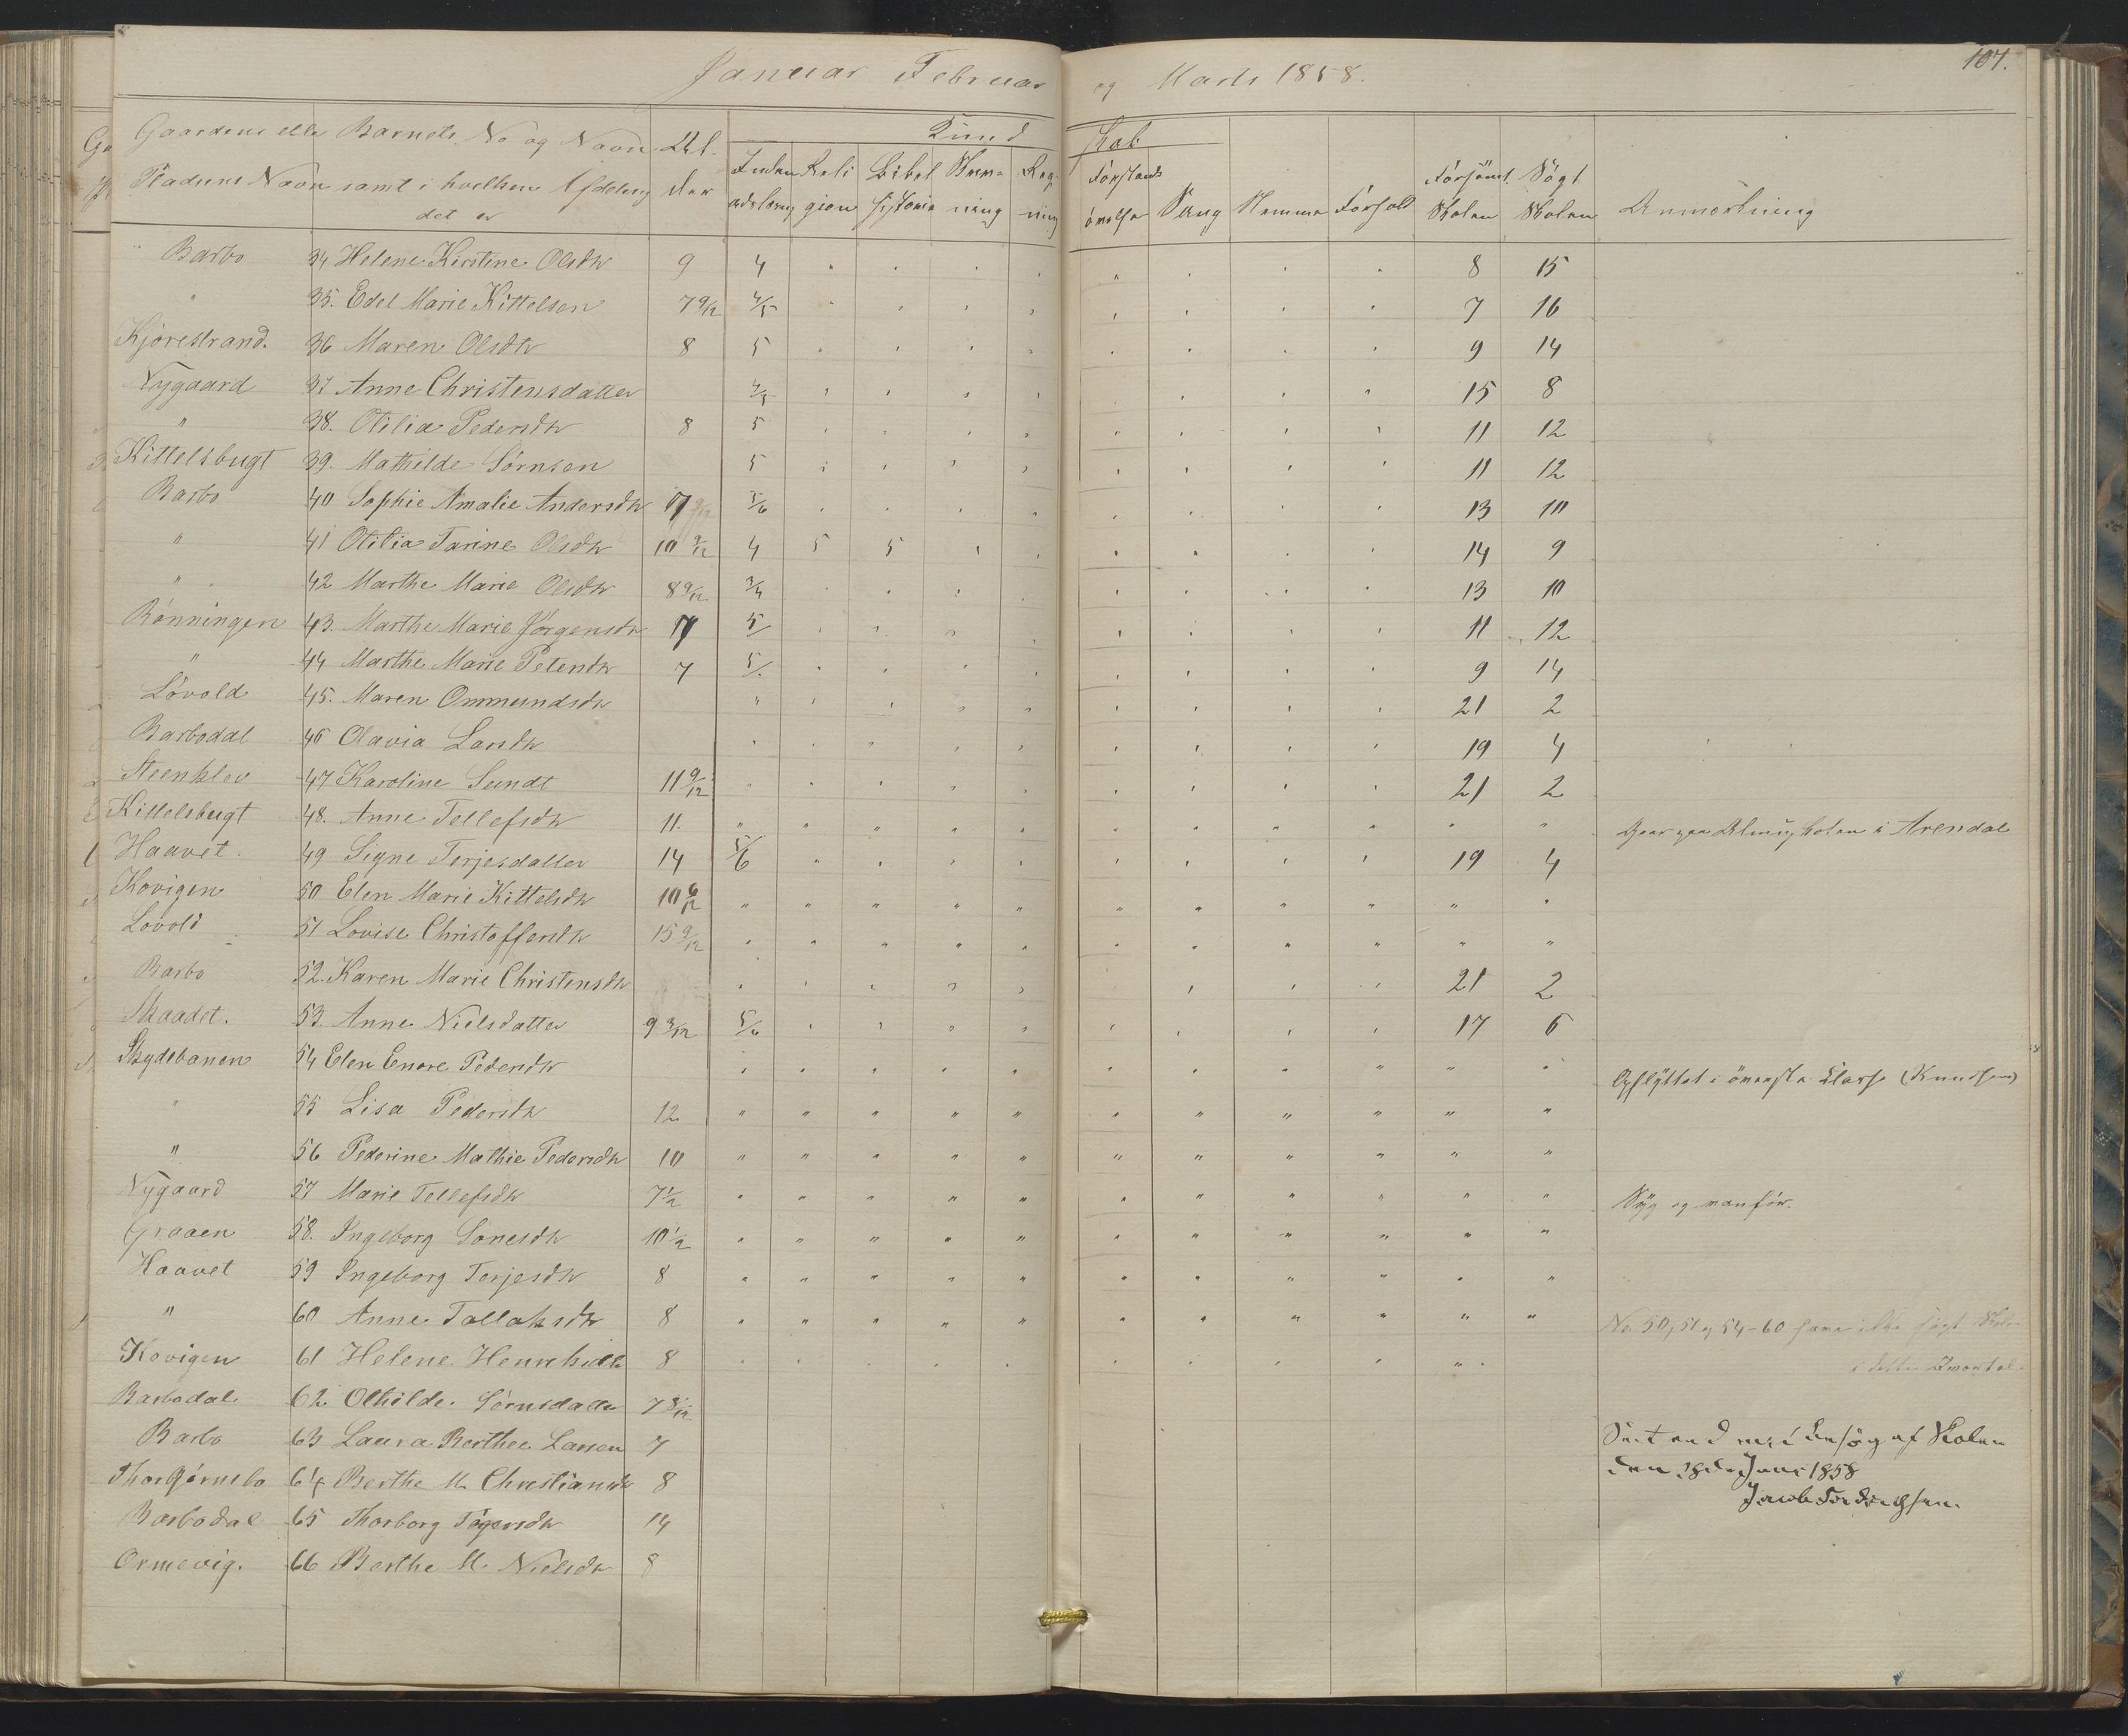 Januar Februar og Marts 1858.
107.
Gaardens eller Pladsens Navn samt i hvilken Afdeling det er
Barnets No og Navn
Alder
Kundskab
Religion
Bibelhistorie
Regning
Forstandsøvelse
Sang
Stemme
Forhold
Forsømt Skolen
Søgt Skolen
Anmærkning
Barbo 34 Helene Kirstine Olsdtr 9 4 " " " " " " " " 8 15
" 35. Edel Marie Kittelsen 7 9/12 4/5 " " " " " " " " 7 16
Kjørestrand. 36 Maren Olsdtr 8 5 " " " " " " " " 9 14
Nygaard 37 Anne Christensdatter 4/5 " " " " " " " 15 8
" 38. Otilia Pedersdtr 8 5 " " " " " " " " 11 12
Kittelsbugt 39. Mathilde Sørnsen 5 " " " " " " " " 11 12
Barbo 40 Sophie Amalie Andersdtr 5/6 " " " " " " " " 13 10
" 41 Otilia Tarine Olsdtr 10 9/12 4 5 5 " " " " " " 14 9
" 42 Marthe Marie Olsdtr 8 9/12 3/4 " " " " " " " " 13 10
Rønningen 43. Marthe Marie Jørgensdtr 7 5/ " " " " " " " " 11 12
" 44 Marthe Marie Petersdtr 7 5/ " " " " " " " " 9 14
Løvold 45. Maren Ommundsdtr " " " " " " " " " 21 2
Barbodal 46 Olavia Larsdtr " " " " " " " " " 19 4
Steenklev 47 Karoline Sundt 11 9/12 " " " " " " " " " 21 2
Kittelsbugt 48. Anne Tellefsdtr 11. " " " " " " " " " " " Gaar paa Almuskolen i Arendal
Haavet 49 Signe Terjesdatter 14 5/6 " " " " " " " " 19 4
Kovigen 50 Elen Marie Kittelsdtr 10 6/12 " " " " " " " " " " "
Løvold 51 Lovise Christoffersdtr 15 9/12 " " " " " " " " " " "
Barbo 52. Karen Marie Christensdtr " " " " " " " " 21 2
Skaadet. 53. Anne Nielsdatter 9 3/12 5/6 " " " " " " " " 17 6
Skydebanen 54 Elen Enore Pedersdtr " " " " " " " " " " " Opflyttet i øverste Klasse (Knudsen)
" 55 Lisa Pedersdtr 12 " " " " " " " " " " "
" 56 Pederine Mathie Pedersdtr 10 " " " " " " " " " " "
Nygaard 57 Marie Tellefsdtr 7 1/2 " " " " " " " " " " " Syg og vanfør.
Graaen 58. Ingeborg Sonesdtr 10 1/2 " " " " " " " " " " "
Haavet 59 Ingeborg Terjesdtr 8 " " " " " " " " " " "
" 60 Anne Tallaksdtr 8 " " " " " " " " " " " No 50, 51 og 54-60 have ikke søgt Skolen
Kovigen 61 Helene Henriksdtr 8 " " " " " " " " " i dette Kvartal.
Barbodal 62 Othilde Sørnsdatter 7 3/12
Barbo 63 Laura Berthee Larsen 7 Seet ved mit Besøg af Skolen
Thorbjørnsbo 64 Berthe M. Christiansdtr 8 den 28de Juni 1858
Barbodal 65 Thorborg Tøgersdtr 14
Ormevig. 66 Berthe M. Nielsdtr 8